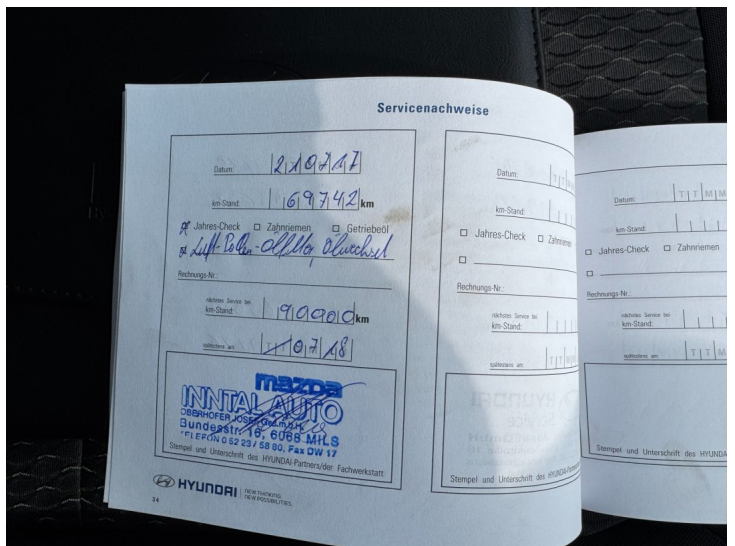 Servicenachweise
Datum: 210717
km-Stand: 69742 km
Jahres-Check Zahnriemen Getriebeöl
Luft-Pollen-Ölfilter, Ölwechsel
Rechnungs-Nr.:
nächstes Service bei
km-Stand: 90000 km
spätestens am: 0718
mazda
INNTAL AUTO
OBERHOFER JOSEF Ges.m.b.H.
Bundesstr. 16, 6068 MILS
TELEFON 0 52 23 / 58 80, Fax DW 17
Stempel und Unterschrift des HYUNDAI-Partners/der Fachwerkstatt
HYUNDAI NEW THINKING.
NEW POSSIBILITIES.
34
Datum: T T M
km-Stand:
Jahres-Check Zahnriemen
Rechnungs-Nr.:
nächstes Service bei
km-Stand:
spätestens am: T T
Stempel und Unterschrift des HYUNDAI-Partners
Datum: T T M M
km-Stand:
Jahres-Check Zahnriemen
Rechnungs-Nr.:
nächstes Service bei
km-Stand:
spätestens am: T T M
Stempel und Unterschrift des HYUNDA